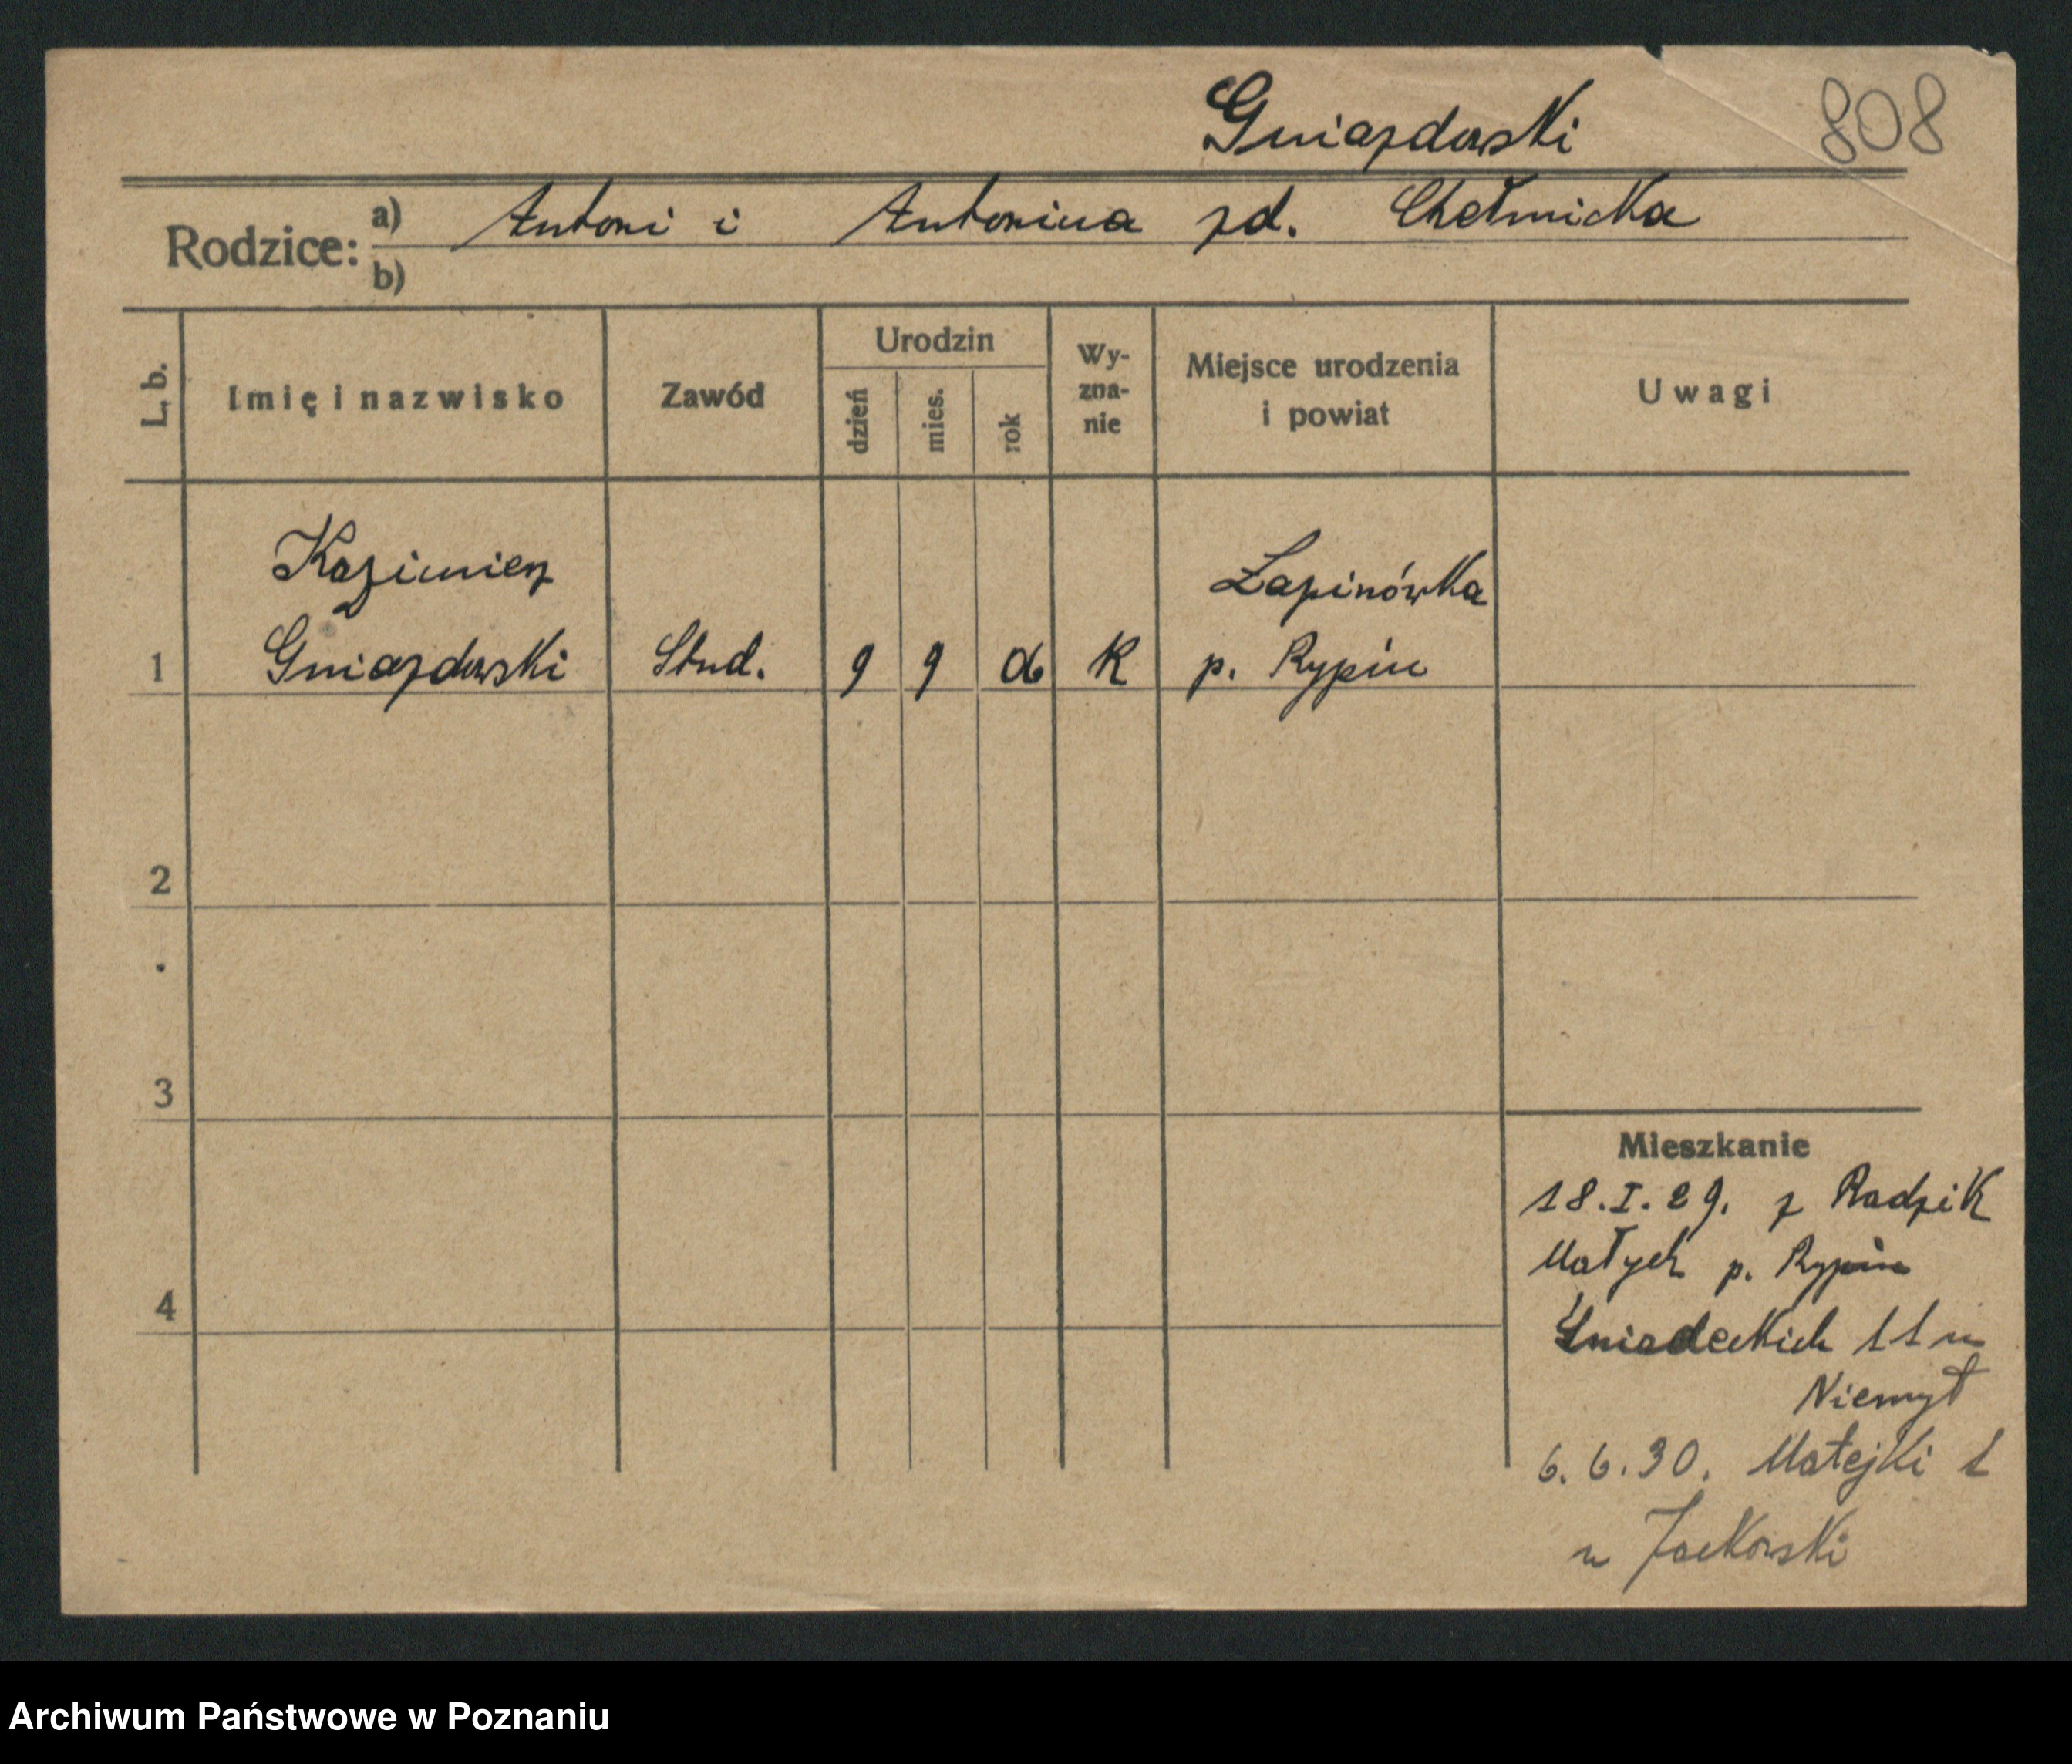 Gniazdowski 808
Rodzice: a) Antoni i Antonina zd. Chełmicka
b)
L. b. Imię i nazwisko Zawód Urodzin dzień mies. rok Wy-zna-nie Miejsce urodzenia i powiat Uwagi
Kazimierz Łapinówka
1 Gniazdowski Stud. 9 9 06 K p. Rypin
2
3
Mieszkanie
18.I.29. z Radzik
Małych p. Rypin
4
Śniadeckich 11 u
Niemyt
6.6.30. Matejki 1
u Jackowski
Archiwum Państwowe w Poznaniu